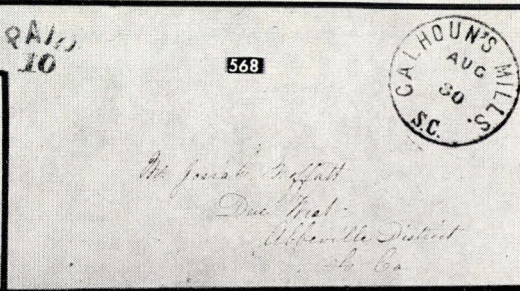 PAID
10
568
CALHOUN'S MILLS.
AUG
30
S.C.
Mr Josiah Moffatt
Due West
Abbeville District
So Ca